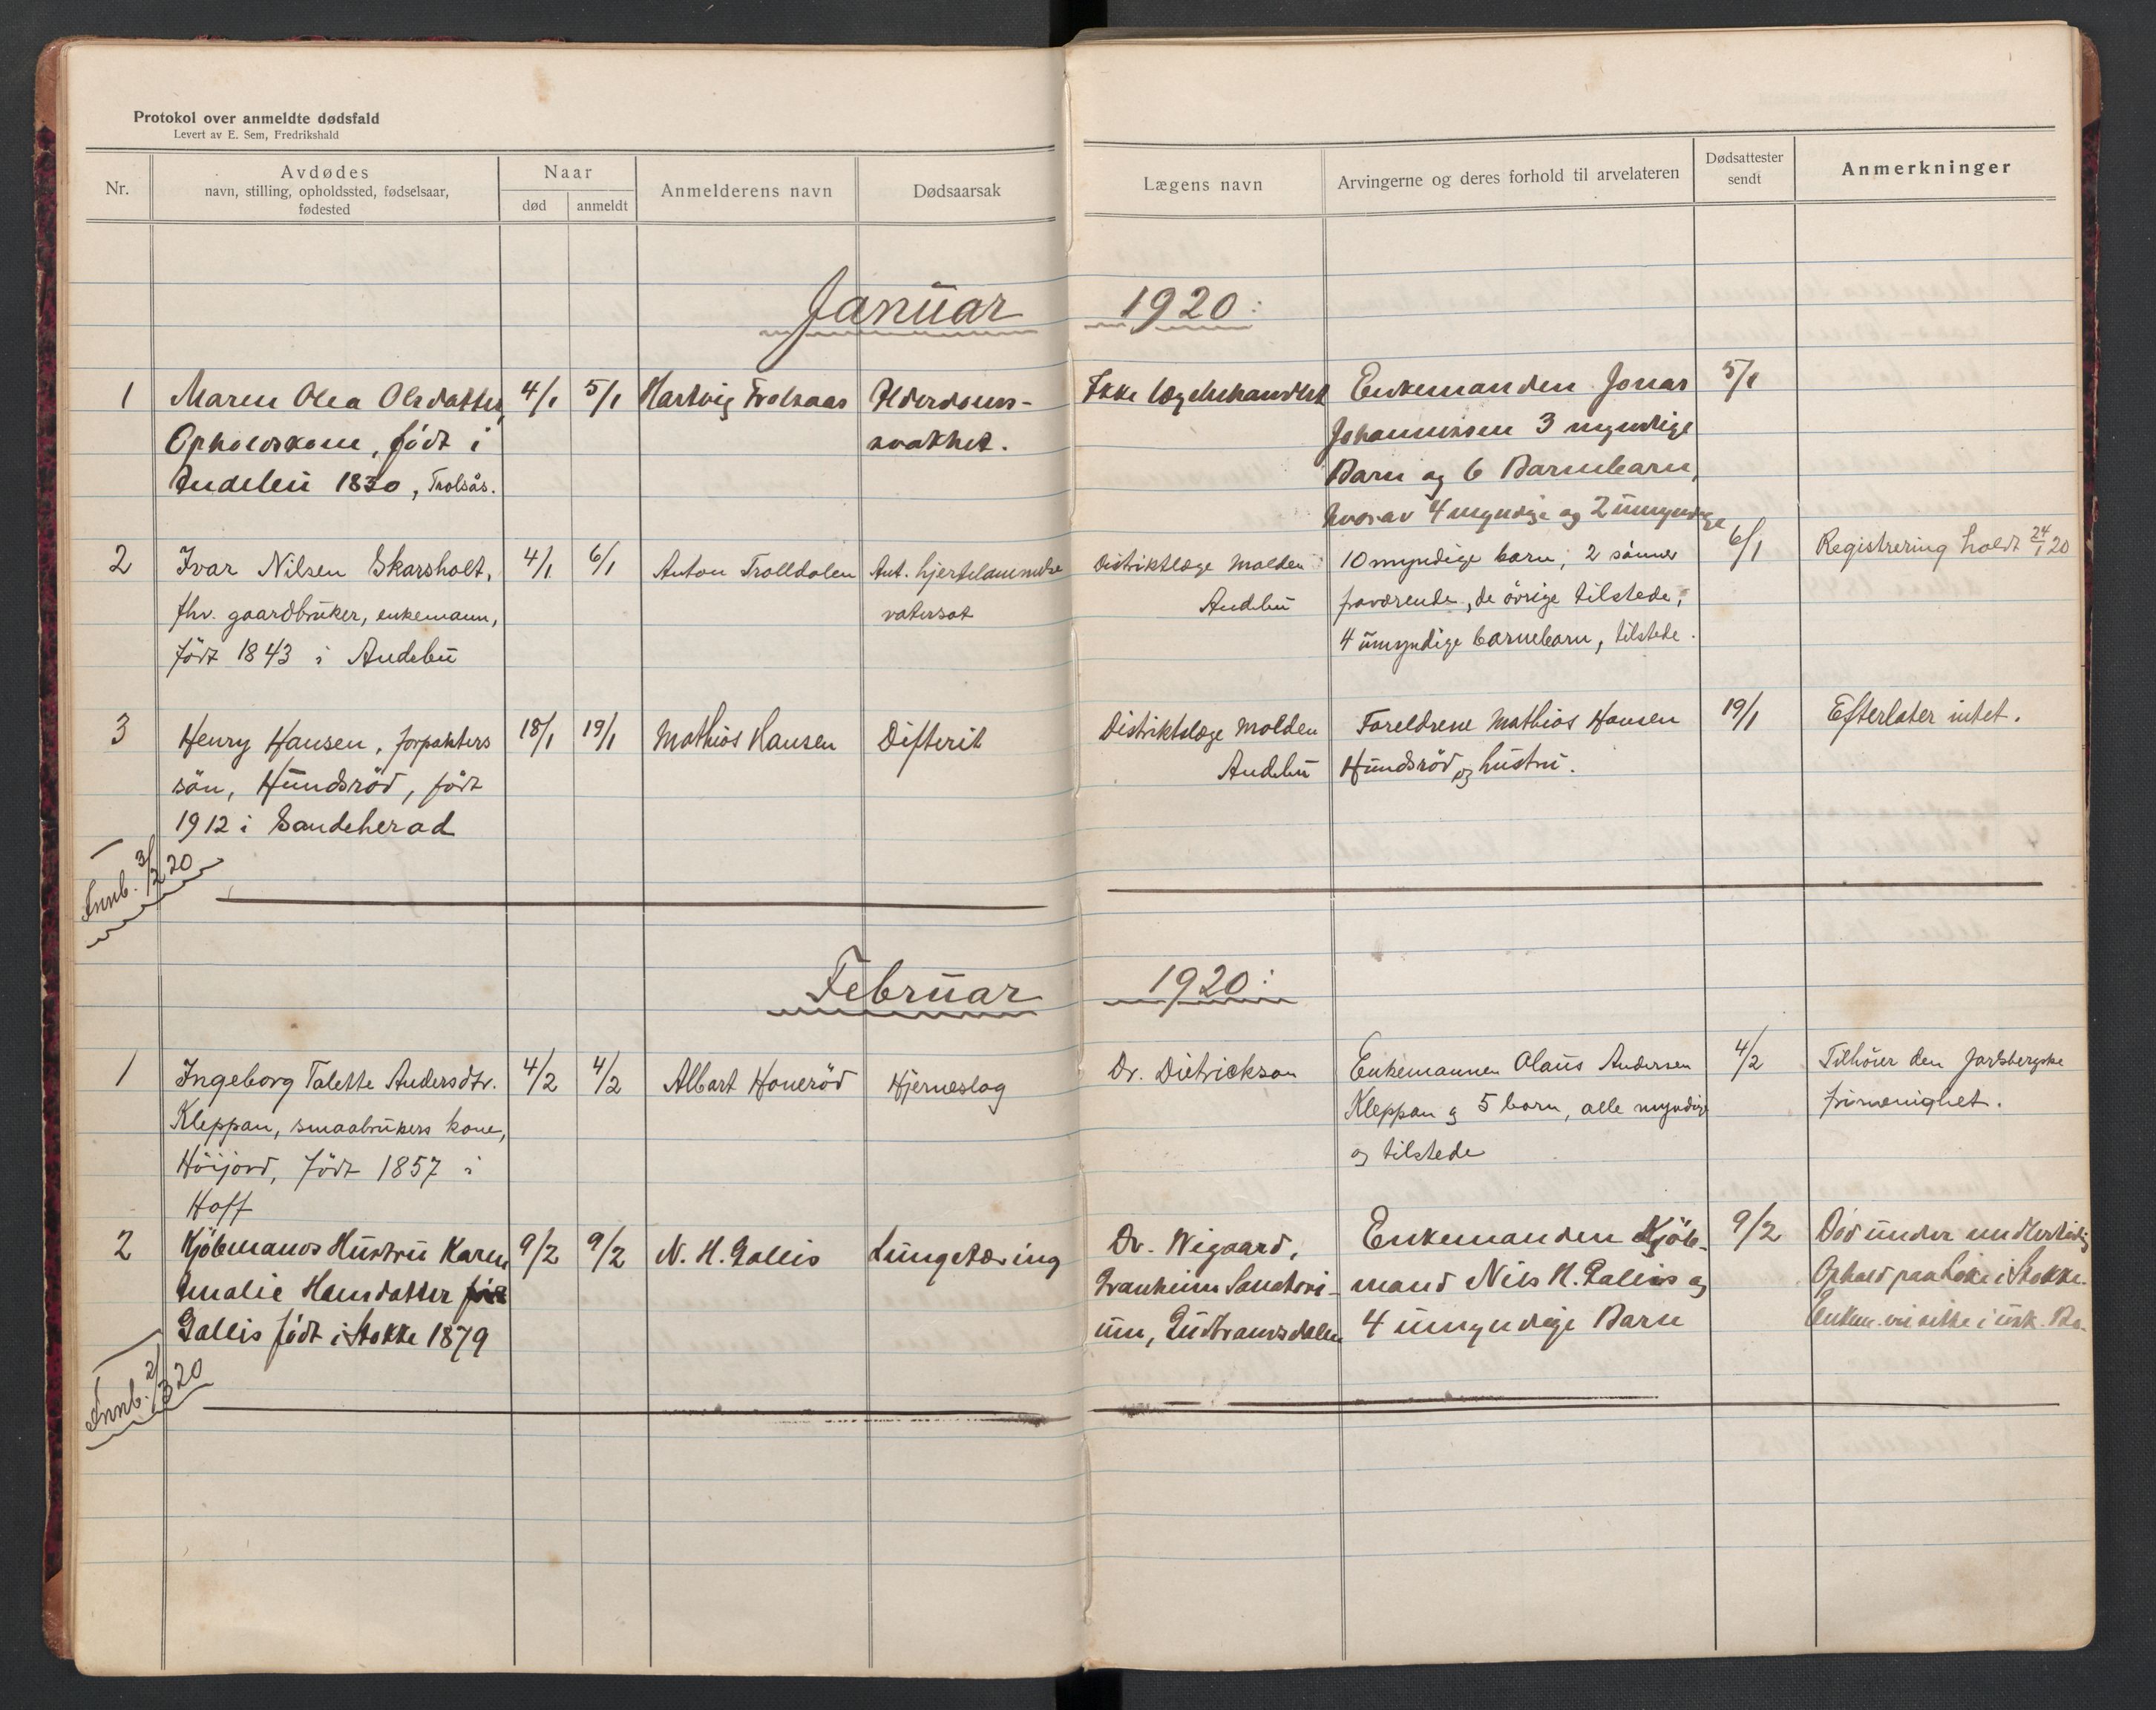 Protokol over anmeldte dødsfald
Levert av E. Sem, Fredrikshald
Nr.
Avdødes
navn, stilling, opholdssted, fødselsaar,
fødested
Naar
død
anmeldt
Anmelderens navn
Dødsaarsak
Lægens navn
Arvingerne og deres forhold til arvelateren
Dødsattester
sendt
Anmerkninger
Januar 1920:
1
Maren Olea Olsdatter,
Opholdskone, født i
Andebu 1830, Trolsås.
4/1
5/1
Hartvig Trolsaas
Alderdoms-
svakhet.
Ikke lægebehandlet
Enkemanden Jonas
Johannessen 3 myndige
Barn og 6 Barnebarn,
hvorav 4 myndige og 2 umyndige
5/1
2
Ivar Nilsen Skarsholt,
fhv. gaardbruker, enkemann,
født 1843 i Andebu
4/1
6/1
Anton Trolldalen
vatersot
Distriktslæge Molden
Andebu
10 myndige barn; 2 sønner
fraværende, de øvrige tilstede;
4 umyndige barnebarn, tilstede.
6/1
Registrering holdt 24/1 20
3
Henry Hansen, forpakters
søn, Hundsrød, født
1912 i Sandeherad
18/1
19/1
Mathias Hansen
Difterit
Distriktslæge Molden
Andebu
Foreldrene Mathias Hansen
Hundsrød og hustru.
19/1
Efterlater intet.
Innb. 3/2 20
Februar 1920:
1
Ingeborg Talette Andersdtr.
Kleppan, smaabrukers kone,
Høijord, født 1857 i
Hoff
4/2
4/2
Albart Honerød
Hjerneslag
Dr. Dietrichson
Enkemannen Olaus Andersen
Kleppan og 5 barn, alle myndige
og tilstede
4/2
Tilhører den Jarlsbergske
frimenighet.
2
Kjøbmands Hustru Karen
Amalie Hansdatter
Gallis født i Stokke 1879
9/2
9/2
N. H. Gallis
Lungetæring
Dr. Wigaard,
Granheim Sanatori-
um, Gudbransdalen
Enkemanden Kjøb-
mand Nils H. Gallis og
4 umyndige Barn
9/2
Død under midlertidig
Ophold paa Løke i Stokke.
Enkem. vil sitte i usk. Bo.
Innb. 2/3 20